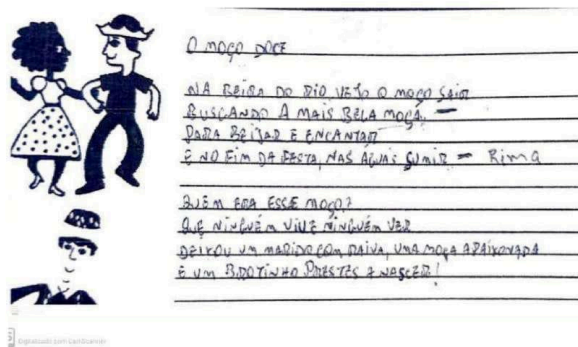 O MOÇO DOCE
NA BEIRA DO RIO VEIO O MOÇO SAIR
BUSCANDO A MAIS BELA MOÇA
PARA BEIJAR E ENCANTAR
E NO FIM DA FESTA, NAS ÁGUAS SUMIR = Rima
QUEM ERA ESSE MOÇO?
QUE NINGUÉM VIU E NINGUÉM VER
DEIXOU UM MARIDO COM RAIVA, UMA MOÇA APAIXONADA
E UM BOTINHO PRESTES A NASCER!
Digitalizado com CamScanner